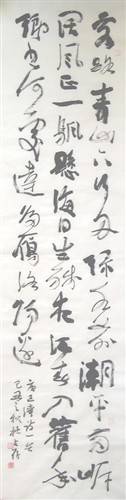 客路青山下行舟綠水前潮平兩岸
闊風正一帆懸海日生殘夜江春入舊年
鄉書何處達歸雁洛陽邊
唐王灣詩一首
己丑之秋